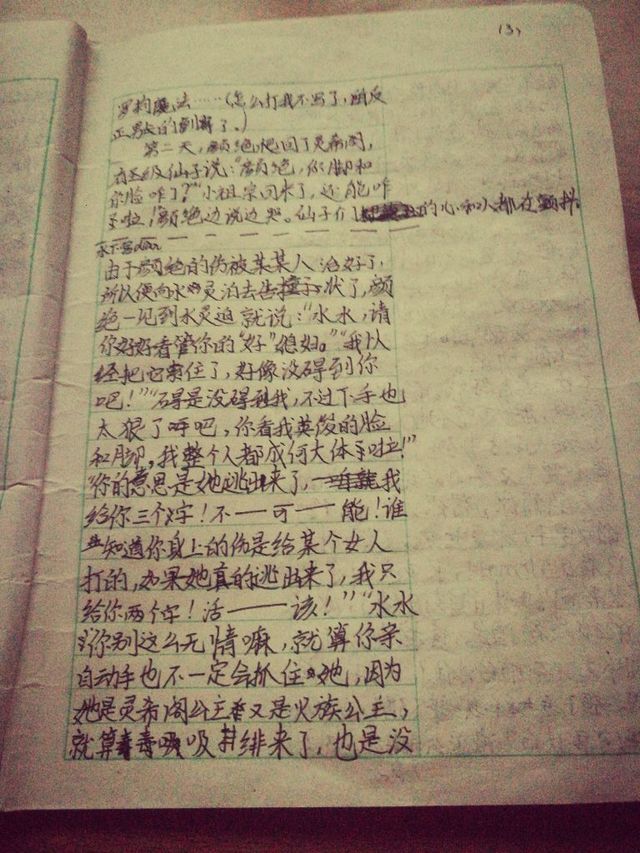 131
罗构魔法……(怎么打我不写了,由反
正默的到将了。)
第二天,颜绝爬回了灵希阁,
仙子说:"颜绝,你脚和
你脸咋了?""小祖宗回来了,还能咋
了啦!"颜绝边说边哭。仙子们的心和人都在颤抖
由于颜绝的伤被某某人治好了,
所以便向水灵泊去告状了,颜
绝一见到水灵迫就说:"水水,请
你好好看管你的"好"媳妇。""我以
经把它索住了,好像没碍到你
吧!""碍是没碍到我,不过下手也
太狠了呼吧,你看我英俊的脸
和脚,我整个人都成何大体了啦!"
"你的意思是她逃出来了,我
给你三个字!不——可——能!谁
知道你身上的伤是给某个女人
打的,如果她真的逃出来了,我只
给你两个字!活——该!""水水
你别这么无情嘛,就算你亲
自动手也不一定会抓住她,因为
她是灵希阁公主又是火族公主,
就算毒毒吸吸绯来了,也是没